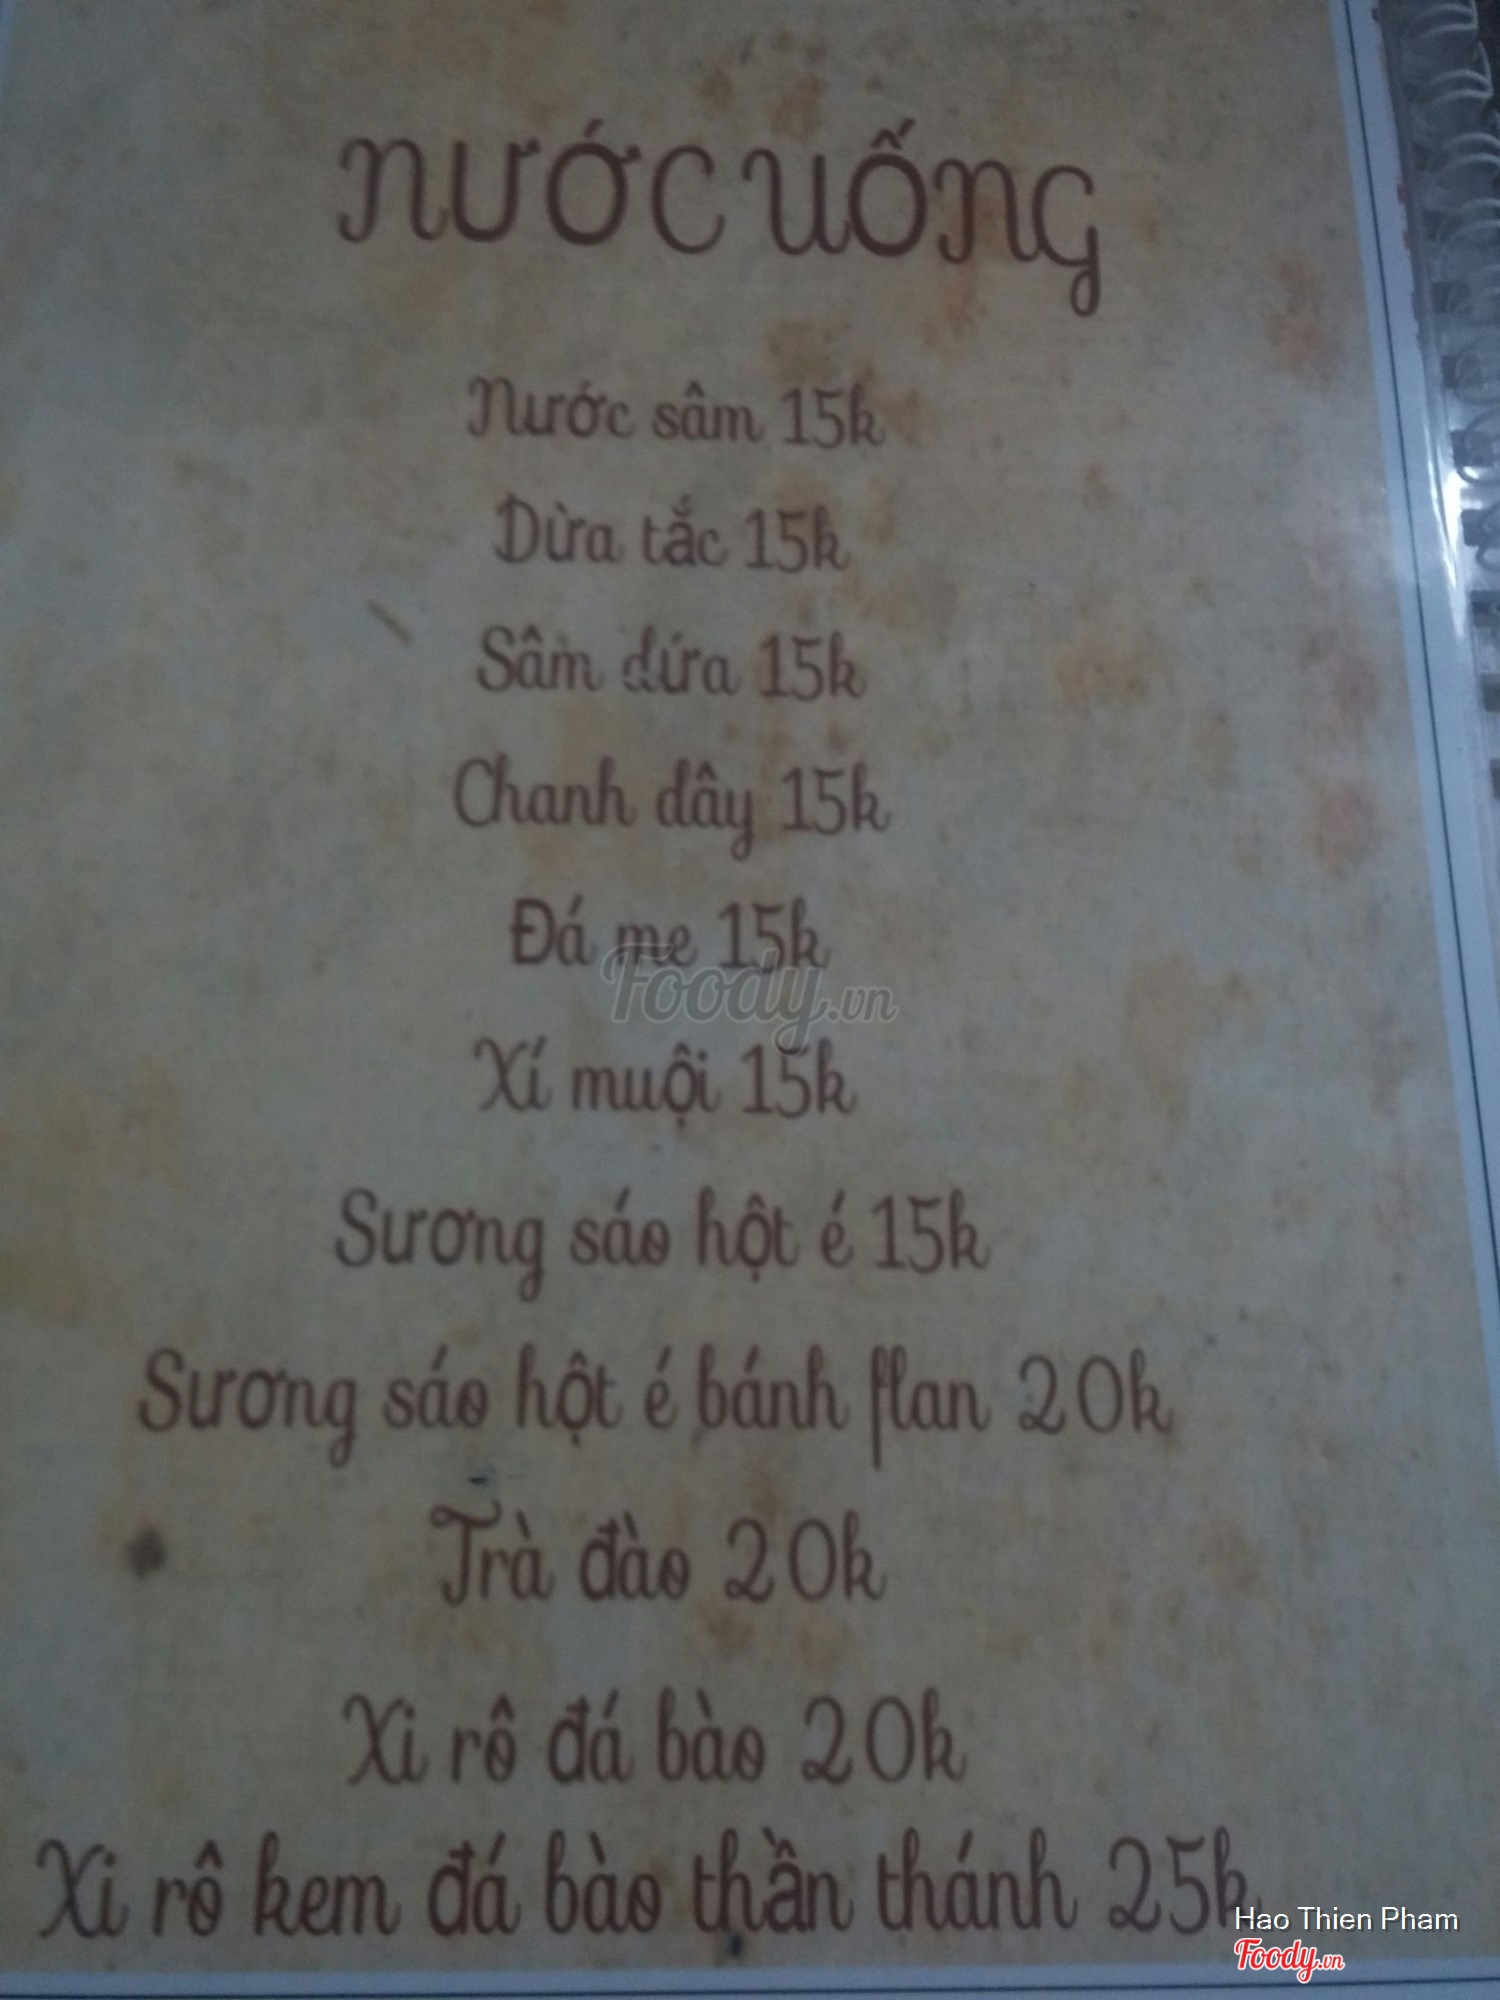 NƯỚC UỐNG
Nước sâm 15k
Dừa tắc 15k
Sâm dứa 15k
Chanh dây 15k
Đá me 15k
Foody.vn
Xí muội 15k
Sương sáo hột é 15k
Sương sáo hột é bánh flan 20k
Trà đào 20k
Xi rô đá bào 20k
Xi rô kem đá bào thần thánh 25k
Hao Thien Pham
Foody.vn